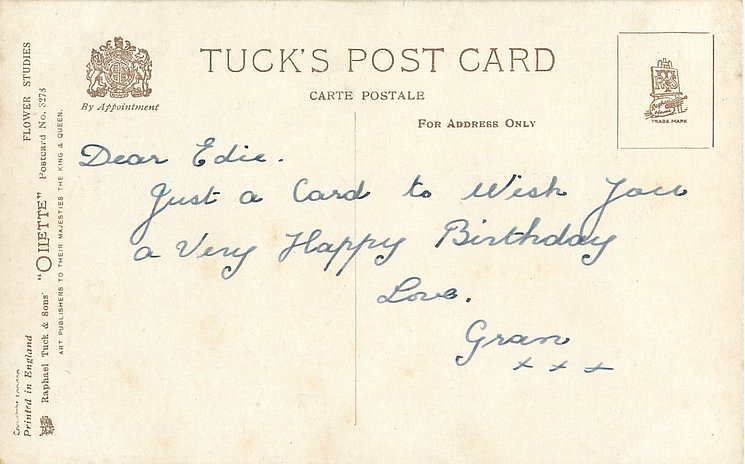 TUCK'S POST CARD
CARTE POSTALE
By Appointment
FOR ADDRESS ONLY
TRADE MARK
Dear Edie.
Just a Card to Wish You
a Very Happy Birthday
Love.
Gran
x x x
FLOWER STUDIES
"OILETTE" Postcard No. 3273
Raphael Tuck & Sons'
ART PUBLISHERS TO THEIR MAJESTIES THE KING & QUEEN.
Printed in England